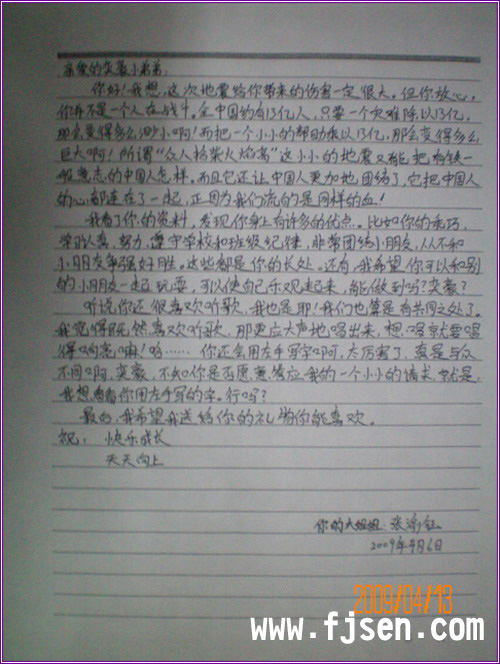 亲爱的奕蓁小弟弟:
你好!我想,这次地震给你带来的伤害一定很大。但你放心,
你并不是一个人在战斗。全中国约有13亿人,只要一个灾难除以13亿,
那会变得多么渺小啊!而把一个小小的帮助乘以13亿,那会变得多么
巨大啊!所谓“众人拾柴火焰高”这小小的地震又能把有钱一
般意志的中国人怎样。而且它还让中国人更加地团结了,它把中国人
的心都连在了一起,正因为我们流的是同样的血!
我看了你的资料,发现你身上有许多的优点。比如你的乖巧,
学习认真、努力,遵守学校和班级纪律,非常团结小朋友,从不和
小朋友争强好胜。这些都是你的长处。还有,我希望你可以和别
的小朋友一起玩耍,可以使自己乐观起来,能做到吗?奕蓁?
听说,你还很喜欢听歌,我也是耶!我们也算是有共同之处了。
我觉得既然喜欢听歌,那更应大声地唱出来,想唱就要唱
得响亮嘛!哈……你还会用左手写字啊,太厉害了,真是与众
不同啊,奕蓁,不知你是否愿意答应我的一个小小的请求,就是,
我想看看你用左手写的字。行吗?
最后,我希望我送给你的礼物你能喜欢。
祝: 快乐成长
天天向上
你的大姐姐:张
2009年4月6日
2009/04/13
www.fjsen.com